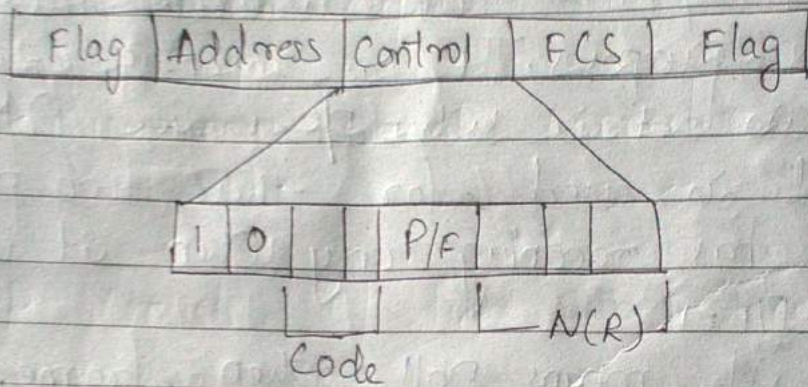 Flag Address Control FCS Flag
1 0 P/F
N(R)
Code